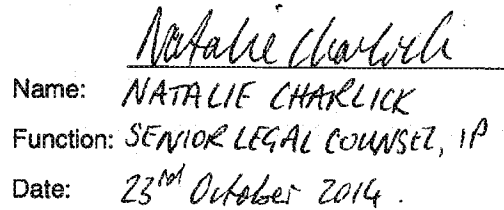 Natalie Charlick
Name: NATALIE CHARLICK
Function: SENIOR LEGAL COUNSEL, IP
Date: 23rd October 2014.